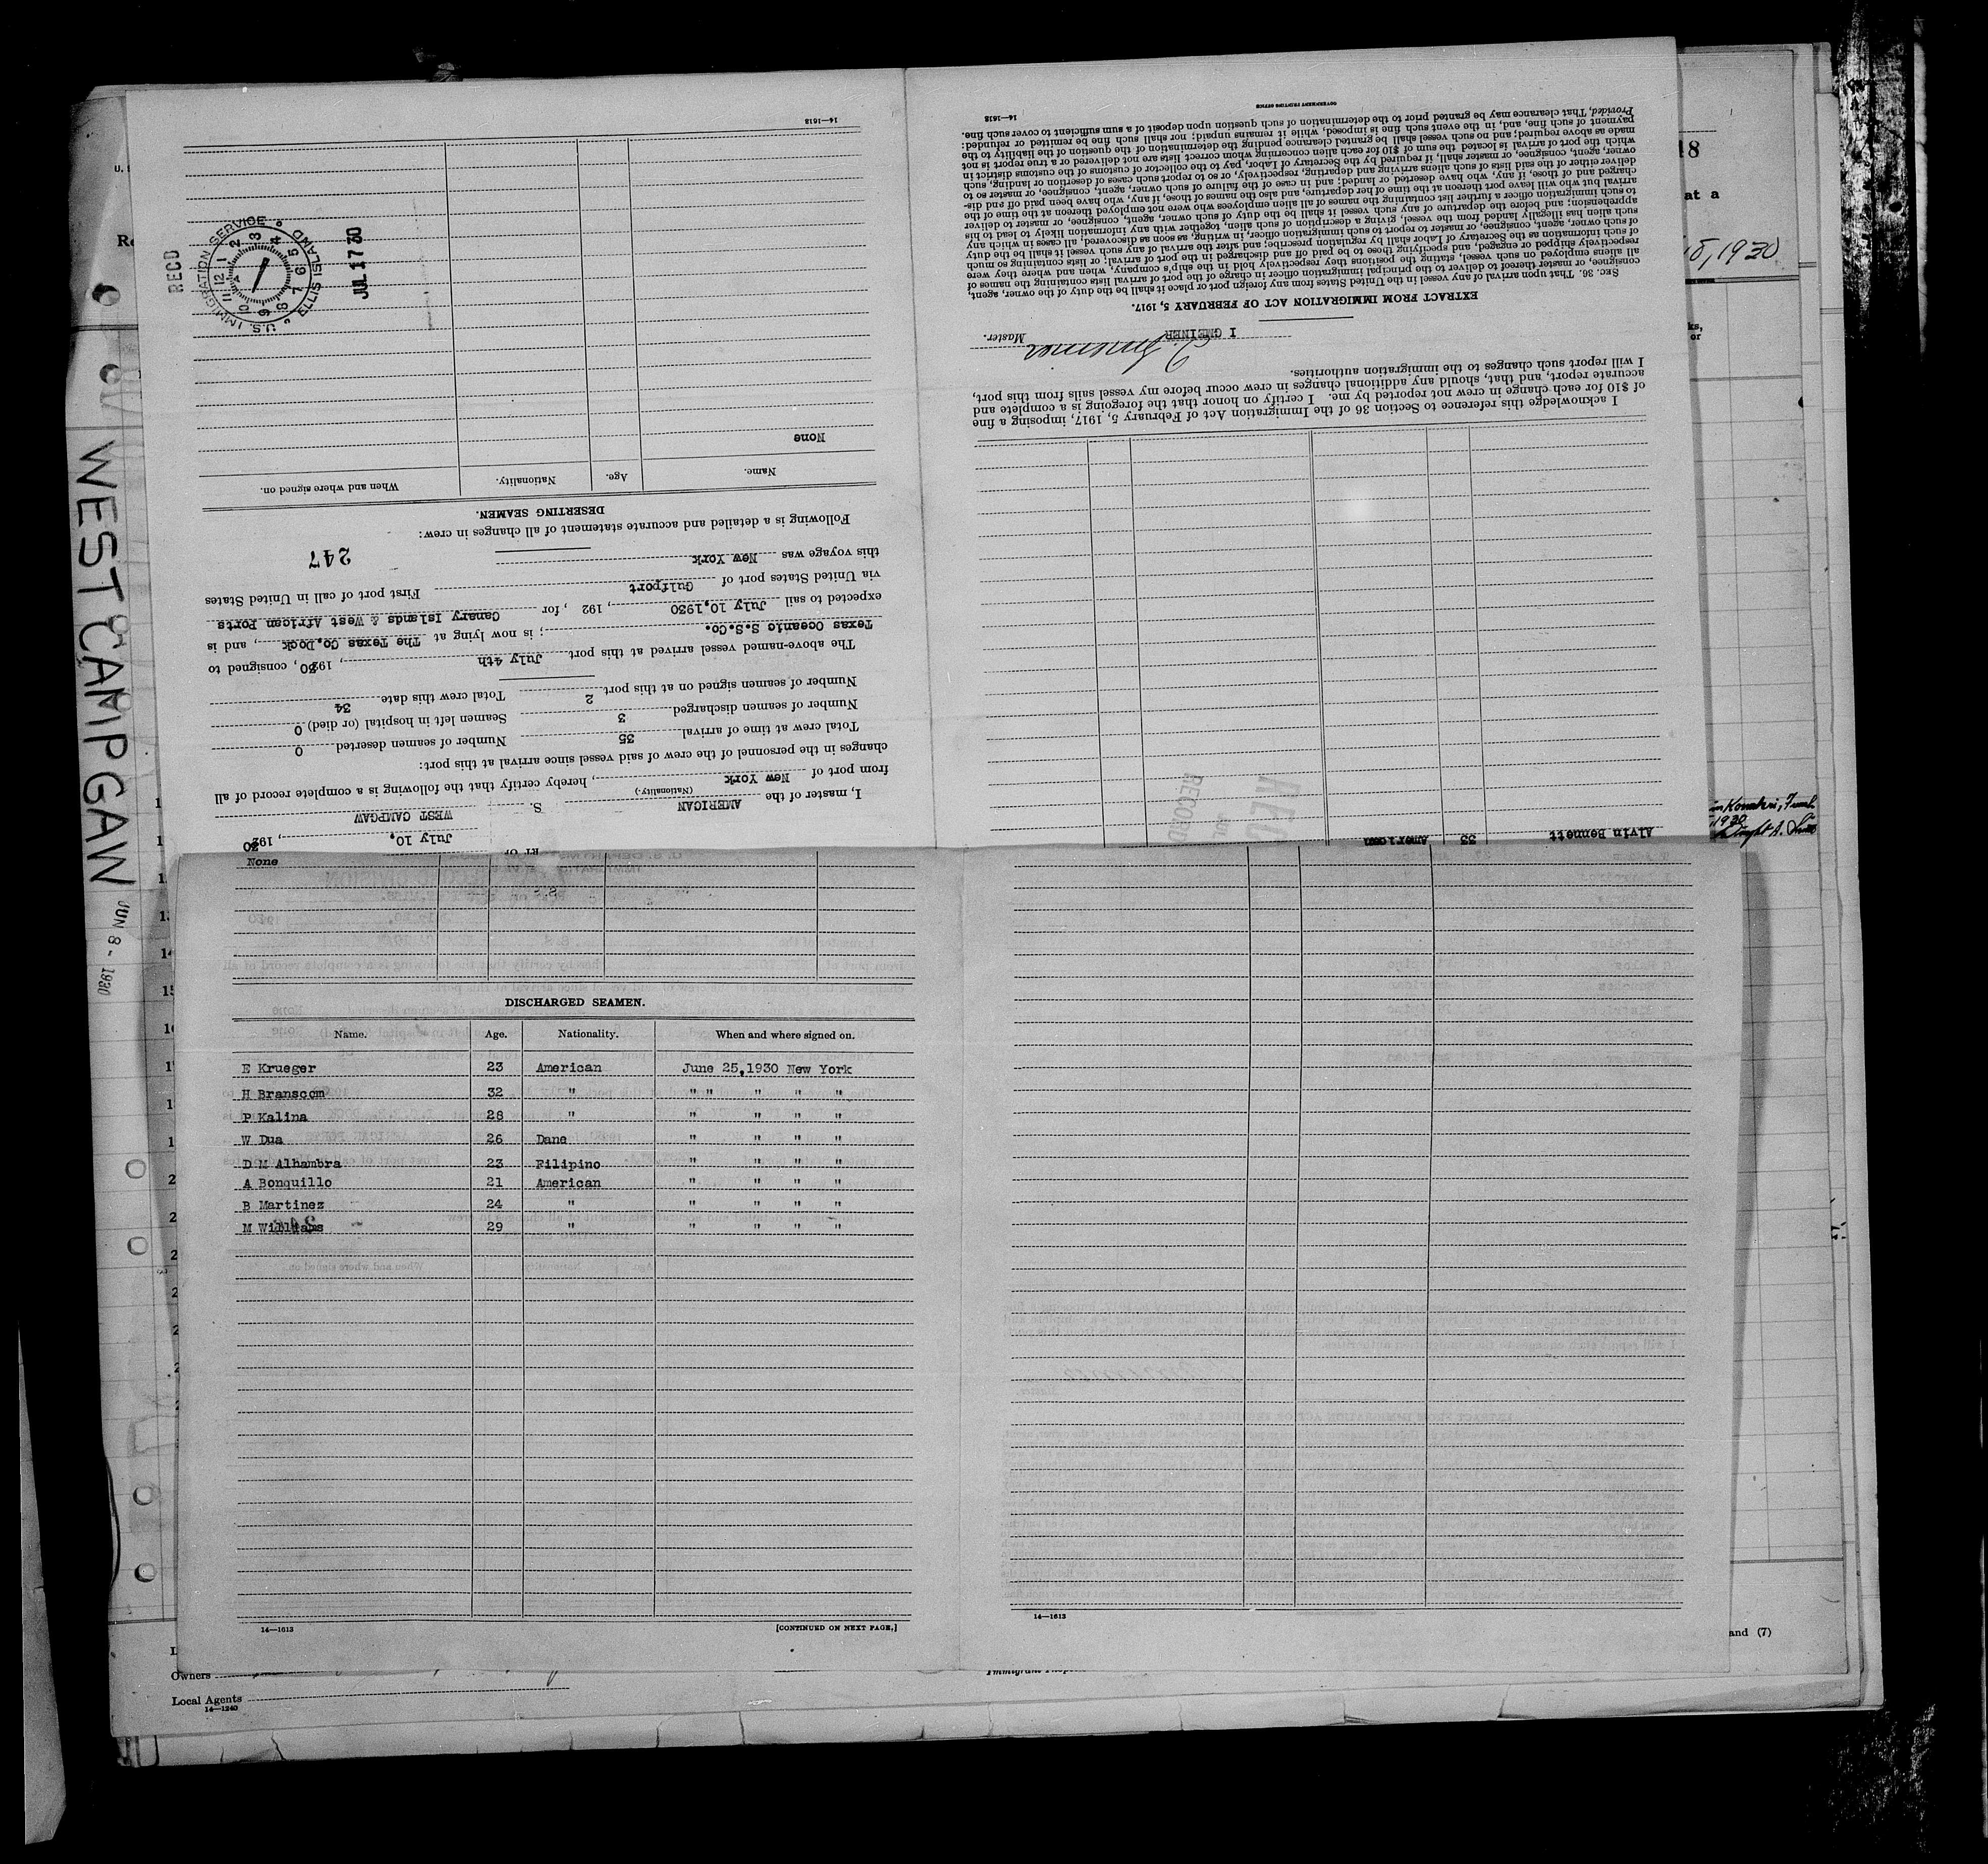 WEST CAMPGAW JUN 8 - 1930
July 10, 1930
WEST CAMPGAW
I, master of the AMERICAN S.
(Nationality.)
from port of New York, hereby certify that the following is a complete record of all
changes in the personnel of the crew of said vessel since arrival at this port:
Total crew at time of arrival 35 Number of seamen deserted 0
Number of seamen discharged 3 Seamen left in hospital (or died) 0
Number of seamen signed on at this port 2 Total crew this date 34
The above-named vessel arrived at this port July 4th, 1930, consigned to
Texas Oceanic S.S.Co.; is now lying at The Texas Co.Dock, and is
expected to sail July 10,1930, 192 , for Canary Islands & West African Ports
via United States port of Gulfport First port of call in United States
this voyage was New York
247
Following is a detailed and accurate statement of all changes in crew:
DESERTING SEAMEN.
Name. Age. Nationality. When and where signed on.
None
RECD
U.S. IMMIGRATION SERVICE
ELLIS ISLAND
JUL 17 30
14—1613
Alvin Bennett 33 American
I acknowledge this reference to Section 36 of the Immigration Act of February 5, 1917, imposing a fine
of $10 for each change in crew not reported by me. I certify on honor that the foregoing is a complete and
accurate report, and that, should any additional changes in crew occur before my vessel sails from this port,
I will report such changes to the immigration authorities.
I GMEINER Master.
EXTRACT FROM IMMIGRATION ACT OF FEBRUARY 5, 1917.
SEC. 36. That upon arrival of any vessel in the United States from any foreign port or place it shall be the duty of the owner, agent,
consignee, or master thereof to deliver to the principal immigration officer in charge of the port of arrival lists containing the names of
all aliens employed on such vessel, stating the positions they respectively hold in the ship's company, when and where they were
respectively shipped or engaged, and specifying those to be paid off and discharged in the port of arrival; or lists containing so much
of such information as the Secretary of Labor shall by regulation prescribe; and after the arrival of any such vessel it shall be the duty
of such owner, agent, consignee, or master to report to such immigration officer, in writing, as soon as discovered, all cases in which any
such alien has illegally landed from the vessel, giving a description of such alien, together with any information likely to lead to his
apprehension; and before the departure of any such vessel it shall be the duty of such owner, agent, consignee, or master to deliver
to such immigration officer a further list containing the names of all alien employees who were not employed thereon at the time of the
arrival but who will leave port thereon at the time of her departure, and also the names of those, if any, who have been paid off and dis-
charged and of those, if any, who have deserted or landed; and in case of the failure of such owner, agent, consignee, or master so to
deliver either of the said lists of such aliens arriving and departing, respectively, or so to report such cases of desertion or landing, such
owner, agent, consignee, or master shall, if required by the Secretary of Labor, pay to the collector of customs of the customs district in
which the port of arrival is located the sum of $10 for each alien concerning whom correct lists are not delivered or a true report is not
made as above required; and no such vessel shall be granted clearance pending the determination of the question of the liability to the
payment of such fine, and, in the event such fine is imposed, while it remains unpaid; nor shall such fine be remitted or refunded:
Provided, That clearance may be granted prior to the determination of such question upon deposit of a sum sufficient to cover such fine.
14—1613
GOVERNMENT PRINTING OFFICE
None
DISCHARGED SEAMEN.
Name. Age. Nationality. When and where signed on.
E Krueger 23 American June 25,1930 New York
H Branscom 32 " " " " " "
P Kalina 28 " " " " "
W Dua 26 Dane " " " "
D M Alhambra 23 Filipino " " " "
A Bonquillo 21 American " " " "
B Martinez 24 " " " " "
M Williams 29 " " " " "
14—1613 [CONTINUED ON NEXT PAGE.]
14—1613
Owners
Local Agents
14—1240
and (7)
at a
1930